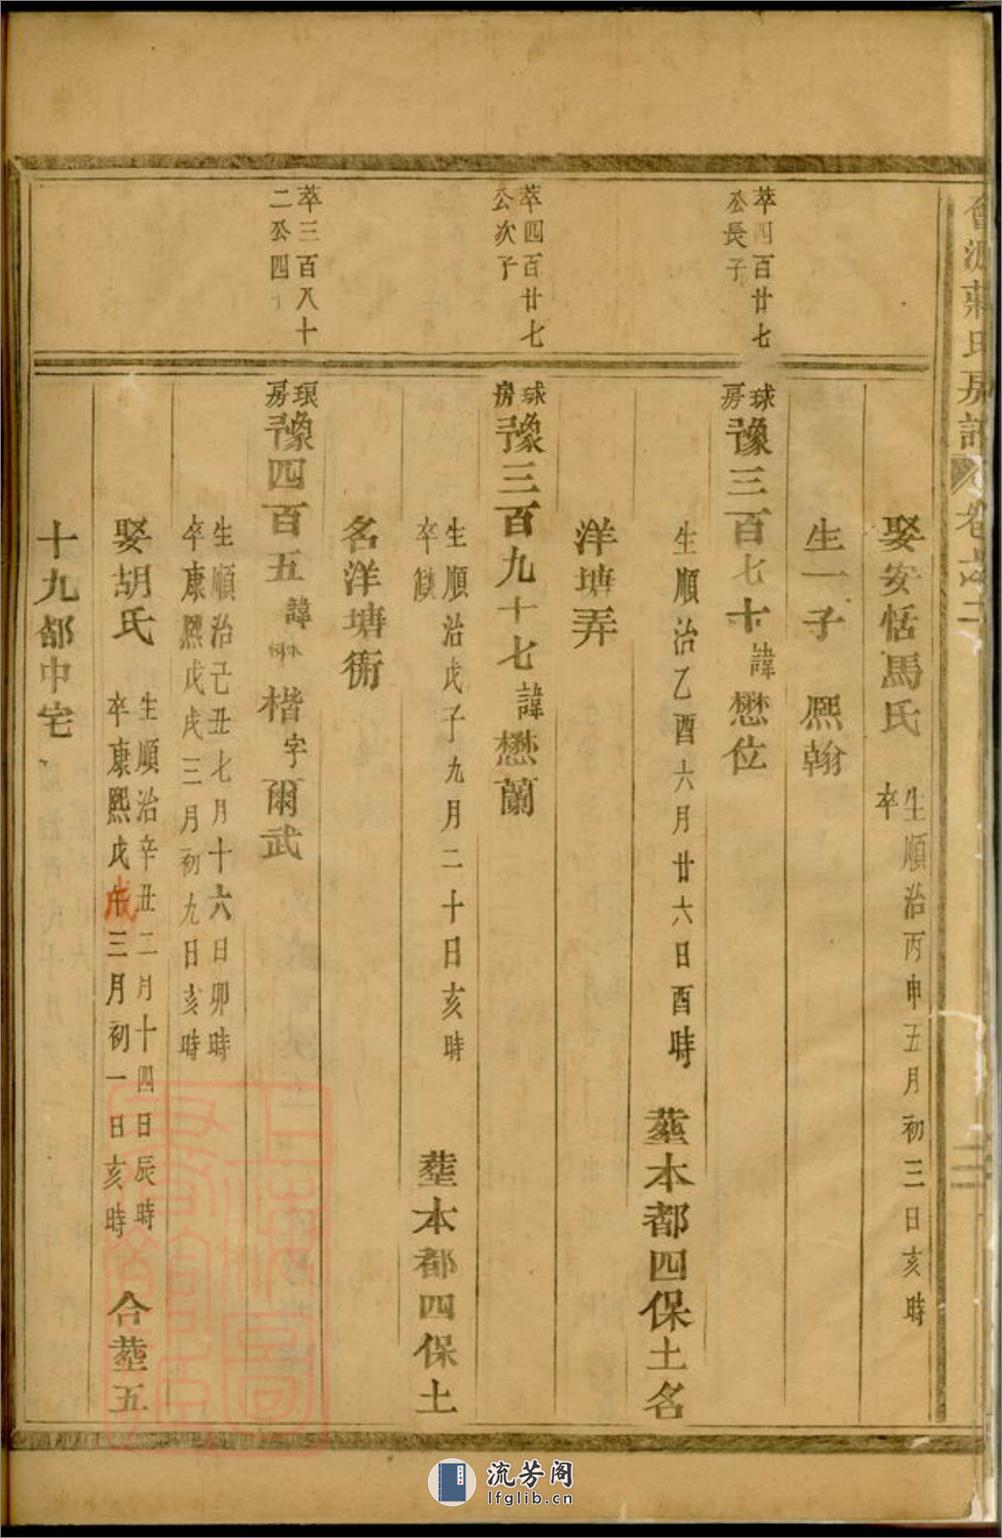 娶安恬馬氏
生順治丙申五月初三日亥時
卒
生一子 熙翰
萃四百廿七
公長子
球房
豫三百七十諱懋位
生順治乙酉六月廿六日酉時
塟本都四保土名
洋塘弄
萃四百廿七
公次子
球房
豫三百九十七諱懋蘭
生順治戊子九月二十日亥時
卒缺
塟本都四保土
名洋塘衕
萃三百八十
二公四子
琅房
豫四百五諱 楷字爾武
生順治己丑七月十六日卯時
卒康熙戊戌三月初九日亥時
娶胡氏
生順治辛丑二月十四日辰時
卒康熙戊戌三月初一日亥時
合塟五
十九都中宅
流芳阁
lfglib.cn